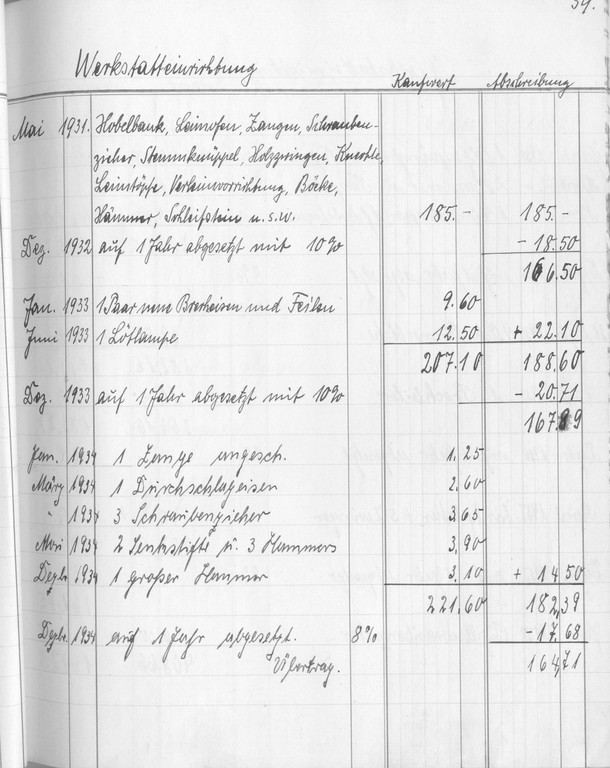 39.
Werkstatteinrichtung Kaufwert Abschreibung
Mai 1931. Hobelbank, Leimofen, Zangen, Schrauben-
zieher, Stemmknüppel, Holzzwingen, Knechte,
Leimtöpfe, Verleimvorrichtung, Böcke,
Hämmer, Schleifstein u.s.w. 185.- 185.-
Dez. 1932 auf 1 Jahr abgesetzt mit 10% - 18.50
166.50
Jan. 1933 1 Paar neue Brecheisen und Feilen 9.60
Juni 1933 1 Lötlampe 12.50 + 22.10
207.10 188.60
Dez. 1933 auf 1 Jahr abgesetzt mit 10% - 20.71
167.89
Jan. 1934 1 Zange angesch. 1.25
März 1934 1 Durchschlageisen 2.60
" 1934 3 Schraubenzieher 3.65
Mai 1934 2 Senkstifte u. 3 Hammers 3.90
Dezbr. 1934 1 großer Hammer 3.10 + 14.50
221.60 182,39
Dezbr. 1934 auf 1 Jahr abgesetzt. 8% - 17.68
Übertrag. 164,71